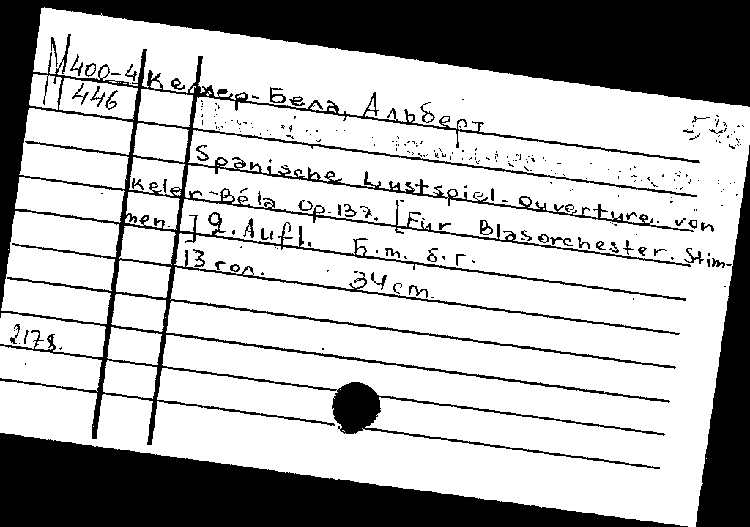 М 400-4 Келлер-Бела, Альберт
446
Spanische Lustspiel-Ouverture von
Keler-Béla Op. 137. [Für Blasorchester. Stim-
men.] 2. Aufl. Б.м., б.г.
13 гол. 34 cm.
2178.